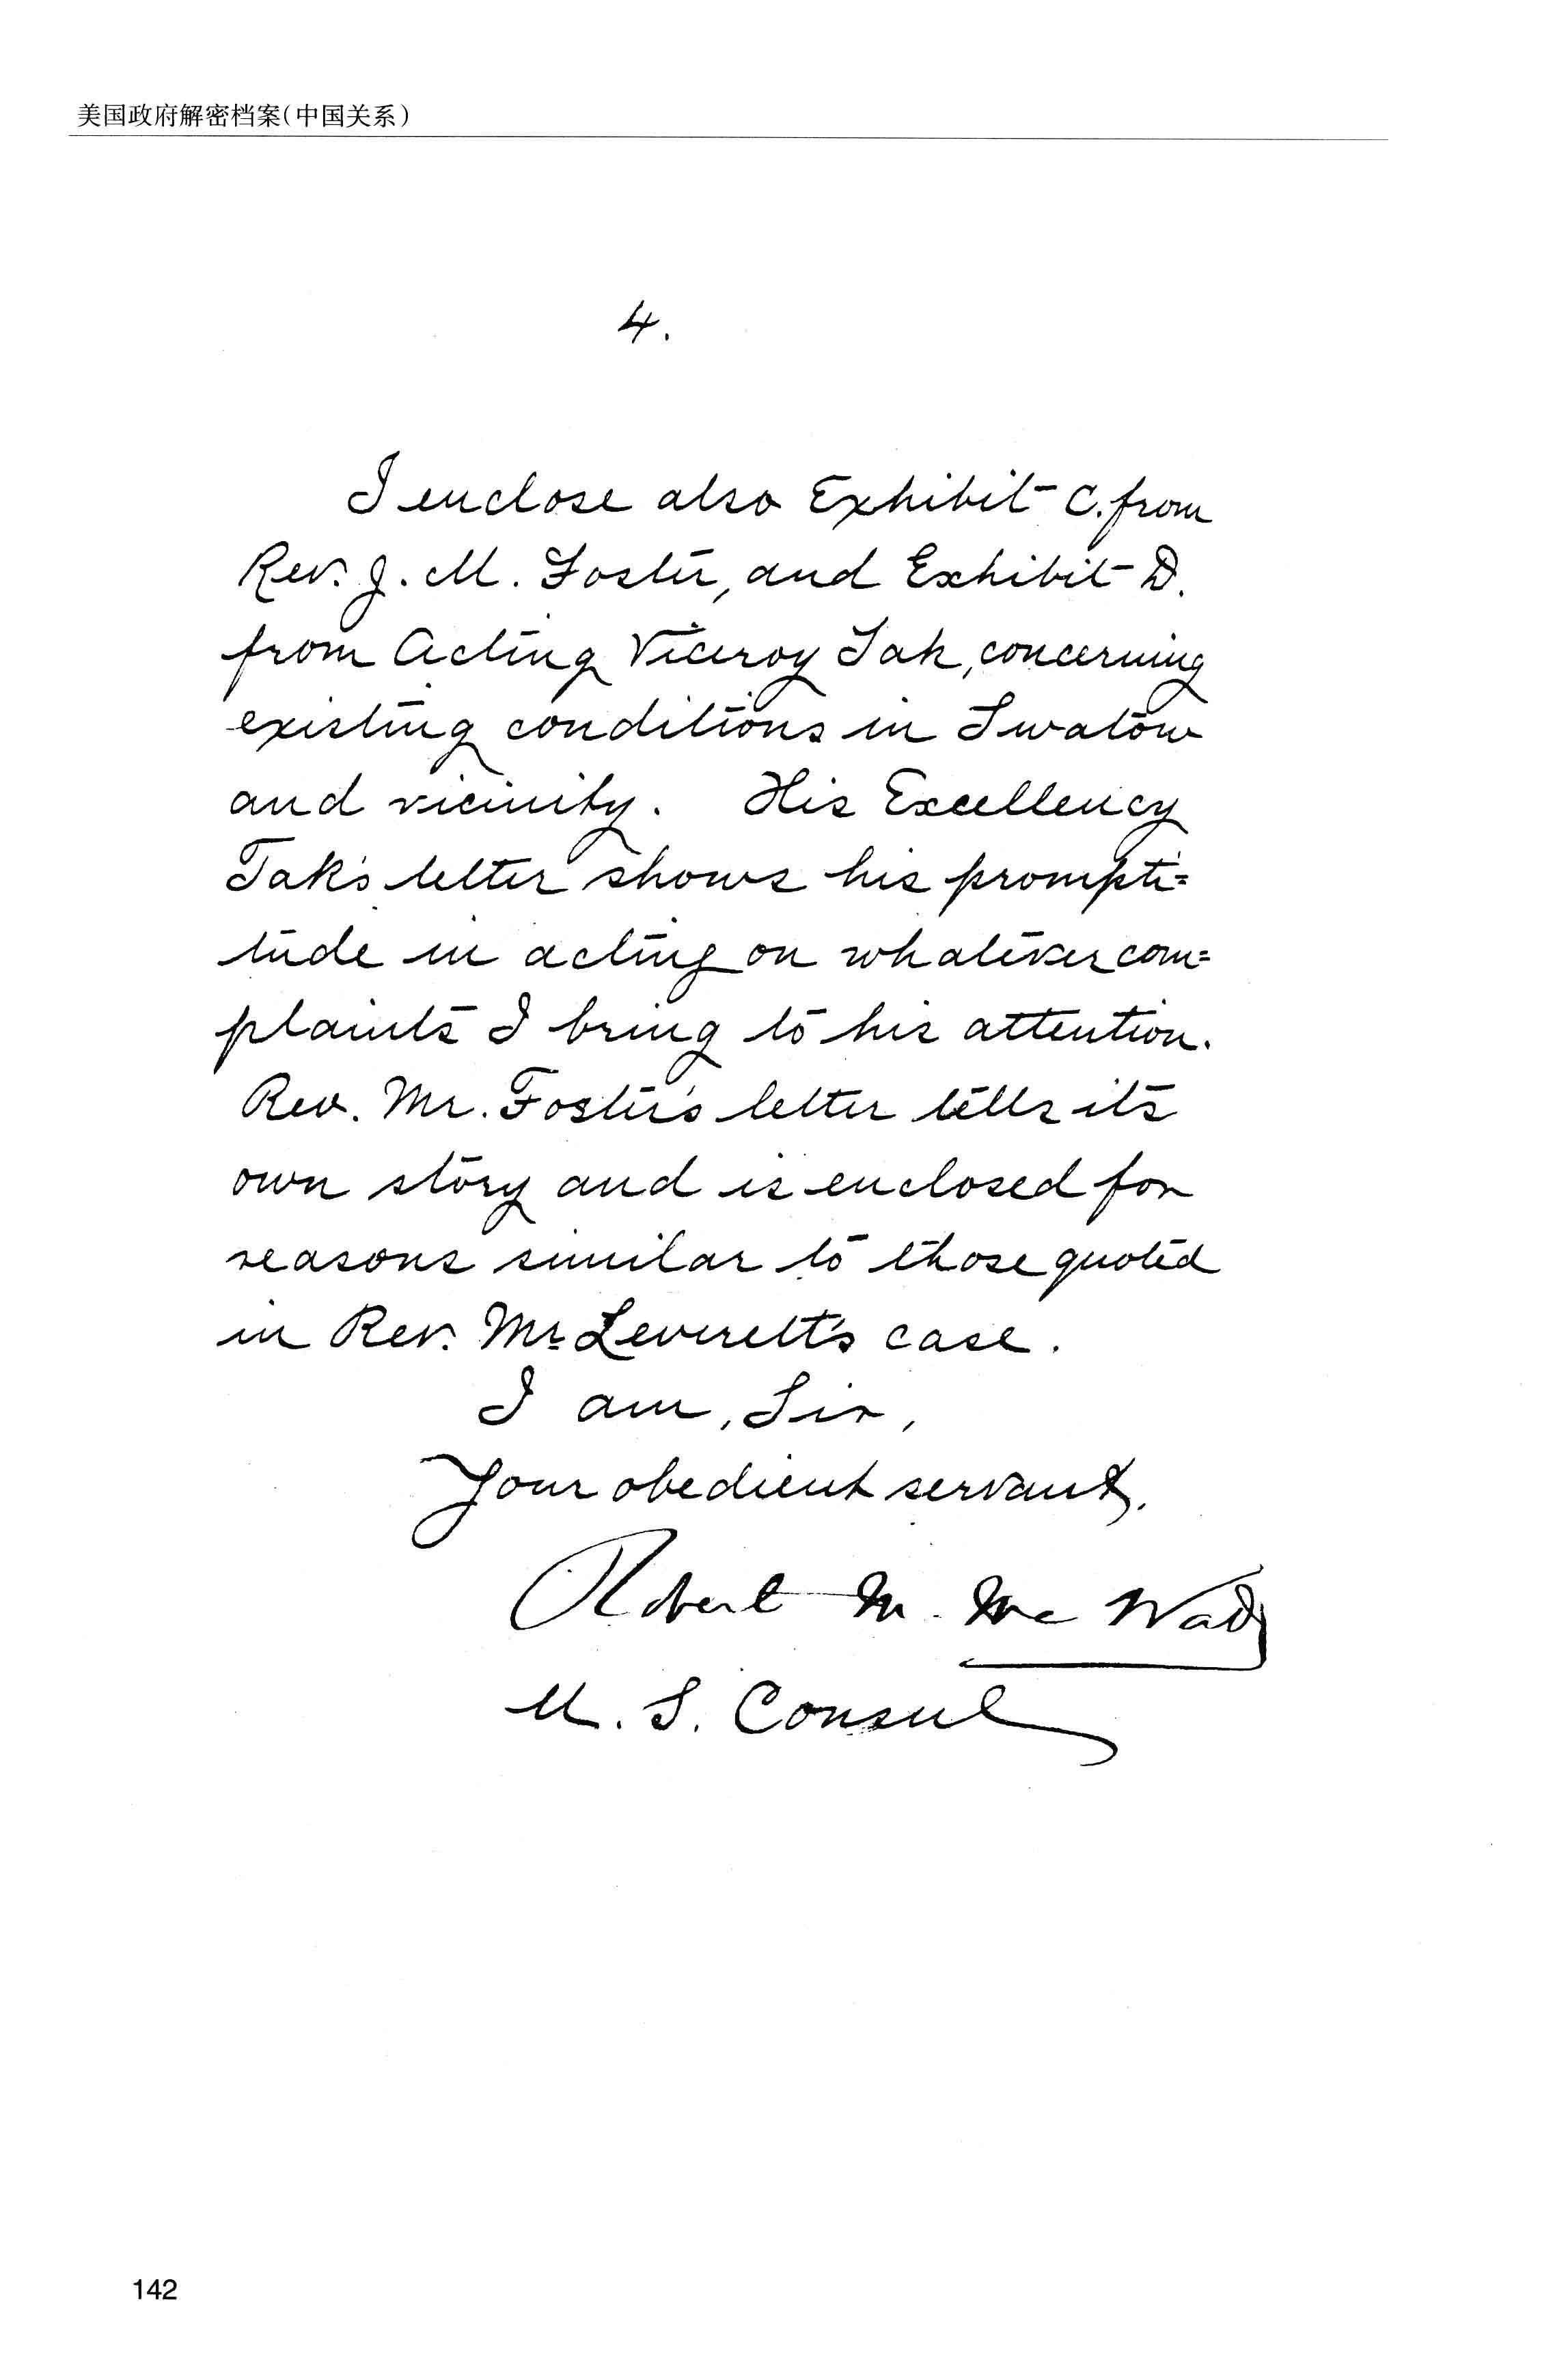 美国政府解密档案(中国关系)
4.
I enclose also Exhibit C. from
Rev. J. M. Foster, and Exhibit D.
from Acting Viceroy Tak, concerning
existing conditions in Swatow
and vicinity. His Excellency
Tak's letter shows his prompti=
tude in acting on whatever com=
plaints I bring to his attention.
Rev. Mr. Foster's letter tells its
own story and is enclosed for
reasons similar to those quoted
in Rev. Mr. Leverett's case.
I am, Sir,
Your obedient servant,
Robert M. McWade
U. S. Consul
142